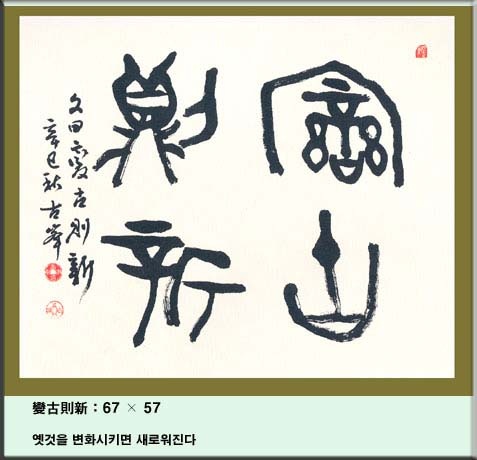 變古
則新
文田云變古則新
辛巳秋 古峯
變古則新 : 67 × 57
옛것을 변화시키면 새로워진다